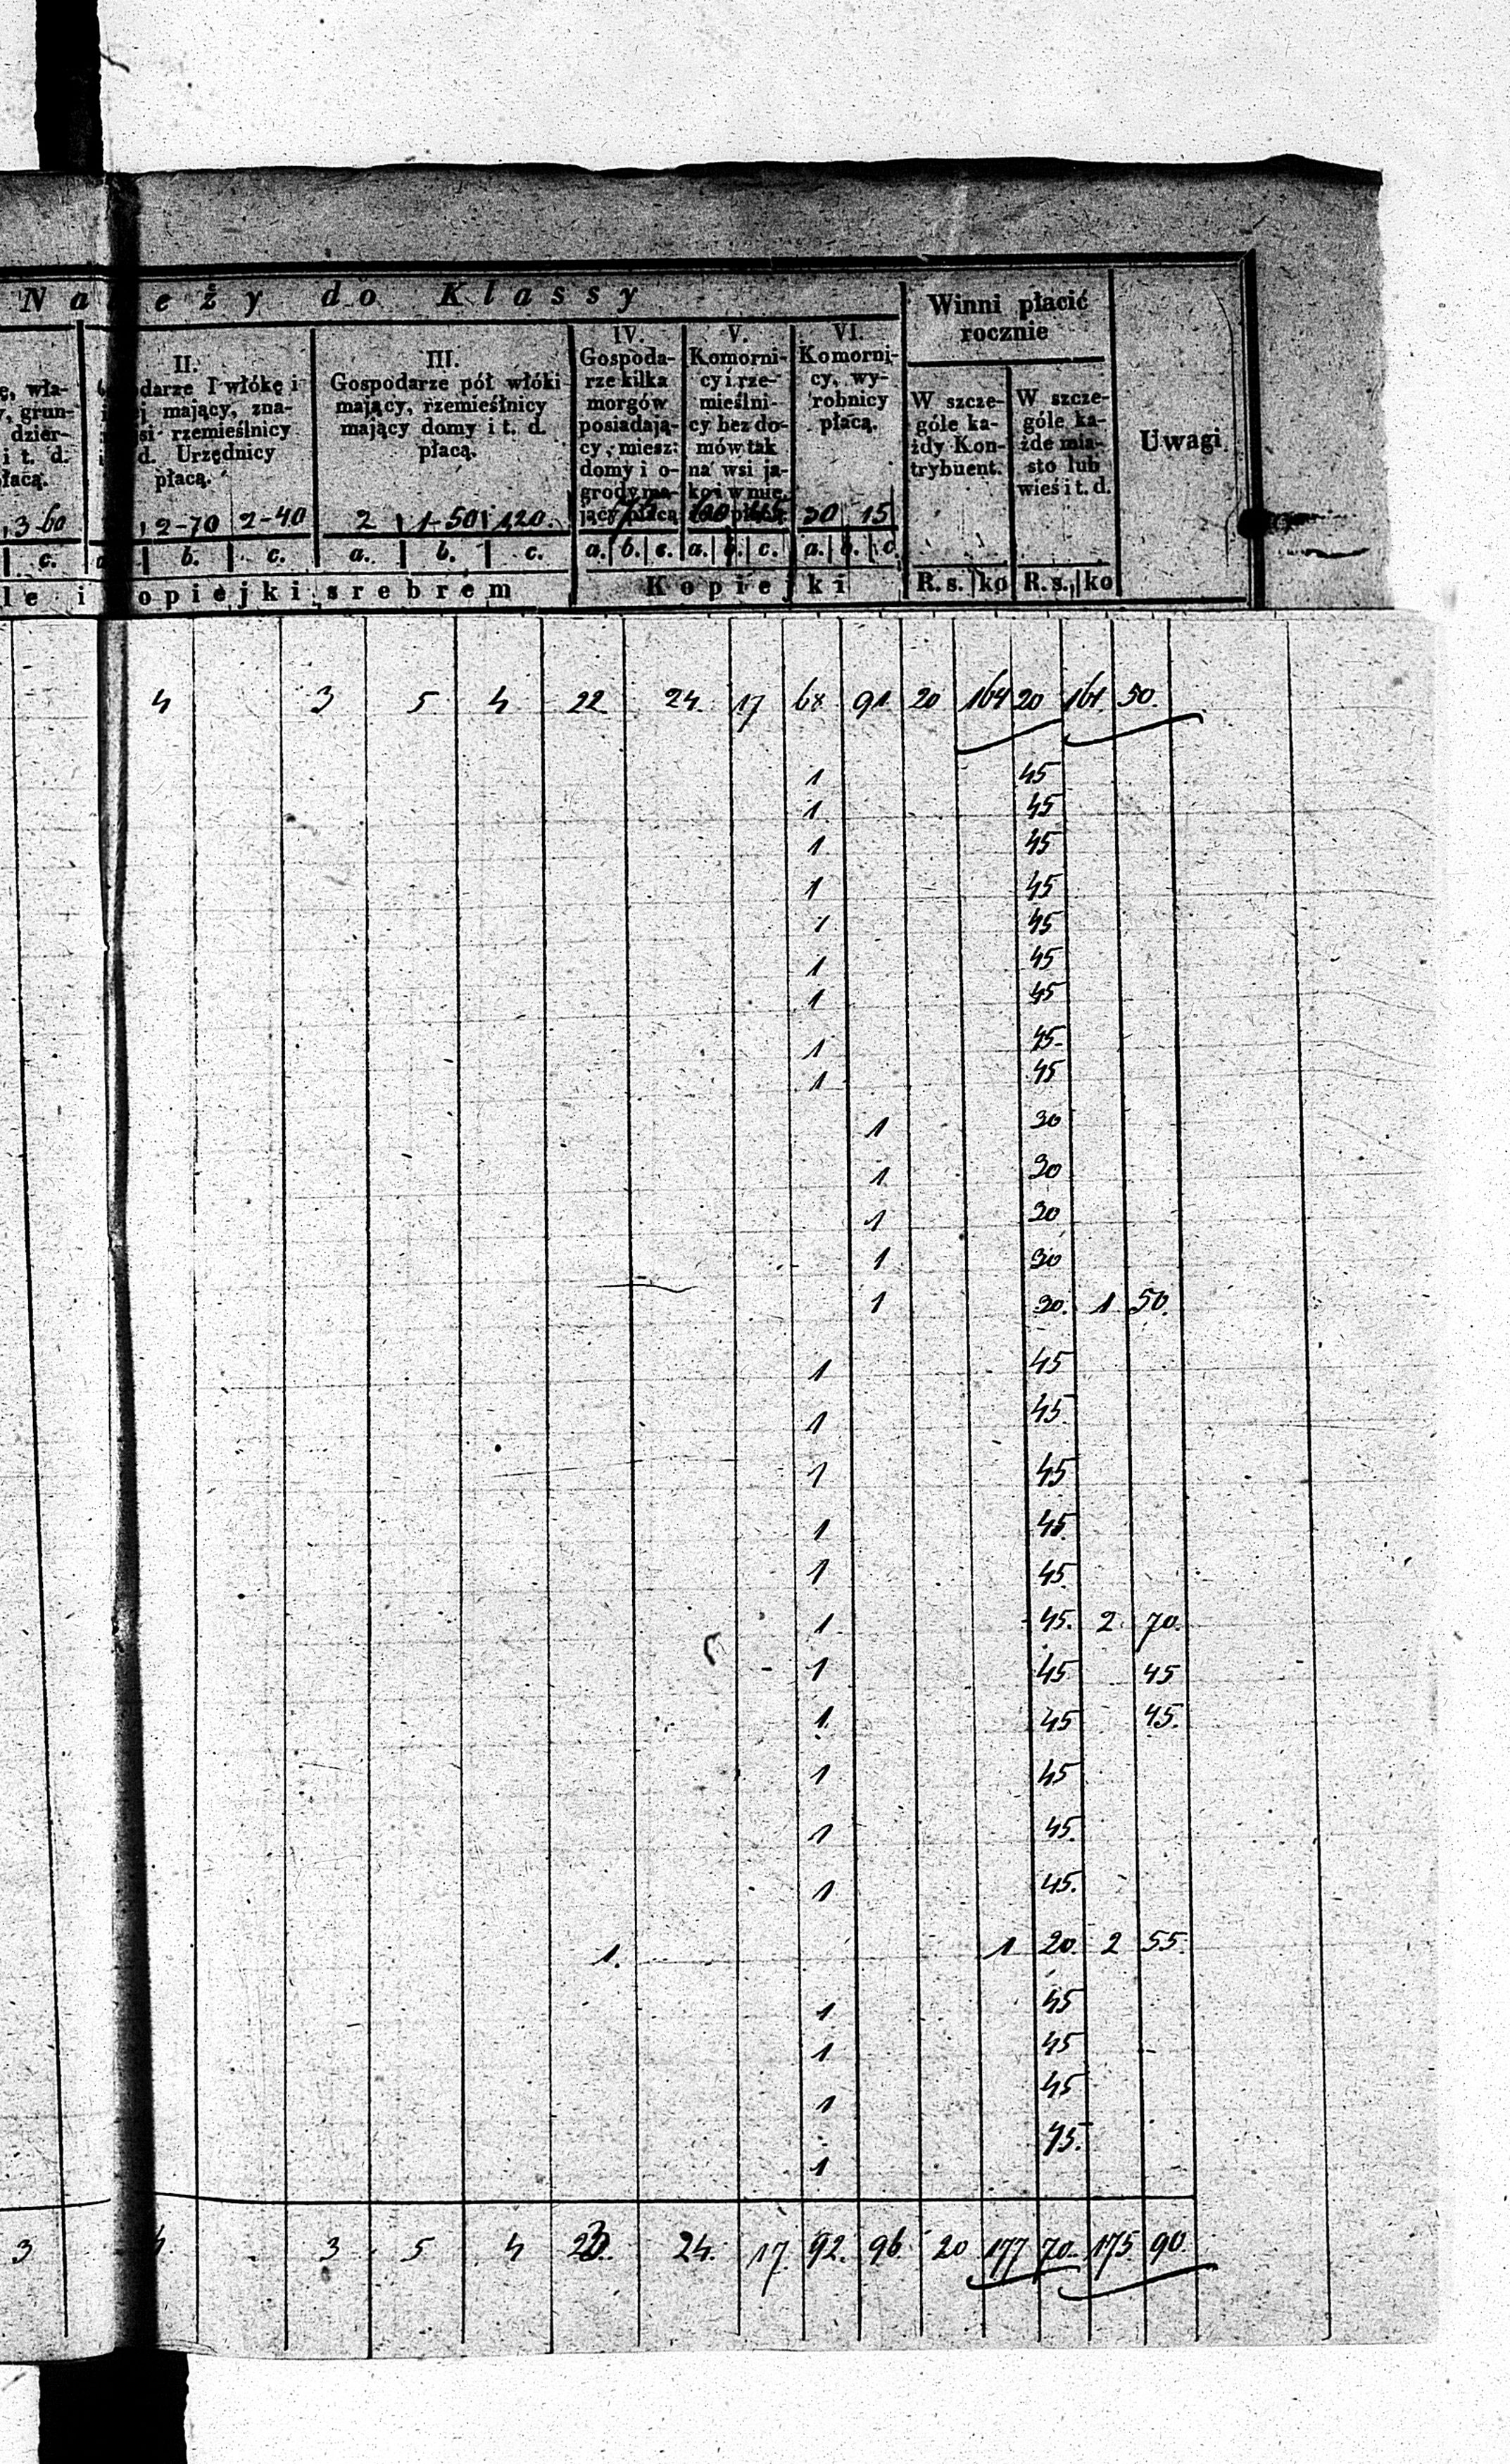 N a l e ż y d o K l a s s y
Winni płacić
rocznie
Uwagi
II.
darze I włókę i
mający, zna-
si rzemieślnicy
d. Urzędnicy
płacą.
III.
Gospodarze pół włóki
mający, rzemieślnicy
mający domy i t. d.
płacą.
IV.
Gospoda-
rze kilka
morgów
posiadają-
cy, miesz:
domy i o-
grody ma-
jący płacą
V.
Komorni-
cy i rze-
mieślni-
cy bez do-
mów tak
na wsi ja-
ko i w mie.
VI.
Komorni-
cy, wy-
robnicy
płacą.
W szcze-
góle ka-
żdy Kon-
trybuent.
W szcze-
góle ka-
żde mia-
sto lub
wieś i t. d.
ę, wła-
grun-
dzier-
i t. d.
3-60 2-70 2-40 2 1-50 1,20. 30 15
c. b. c. a. b. c. a. b. c. a. b. c. a. b. c.
opiejki srebrem Kopiejki R. s. ko R. s. ko
4 3 5 4 22 24 17 68 91 20 164 20 161 50.
1 45
1 45
1 45
1 45
1 45
1 45
1 45
1 45
1 45
1 30
1 30
1 30
1 30
1 30. 1 50.
1 45
1 45
1 45
1 45
1 45
1 45. 2 70.
1 45 45
1 45 45.
1 45
1 45.
1 45.
1. 1 20 2 55.
1 45
1 45
1 45
1 45.
3 4. 3 5 4 23. 24. 17 92. 96. 20 177 70. 175 90